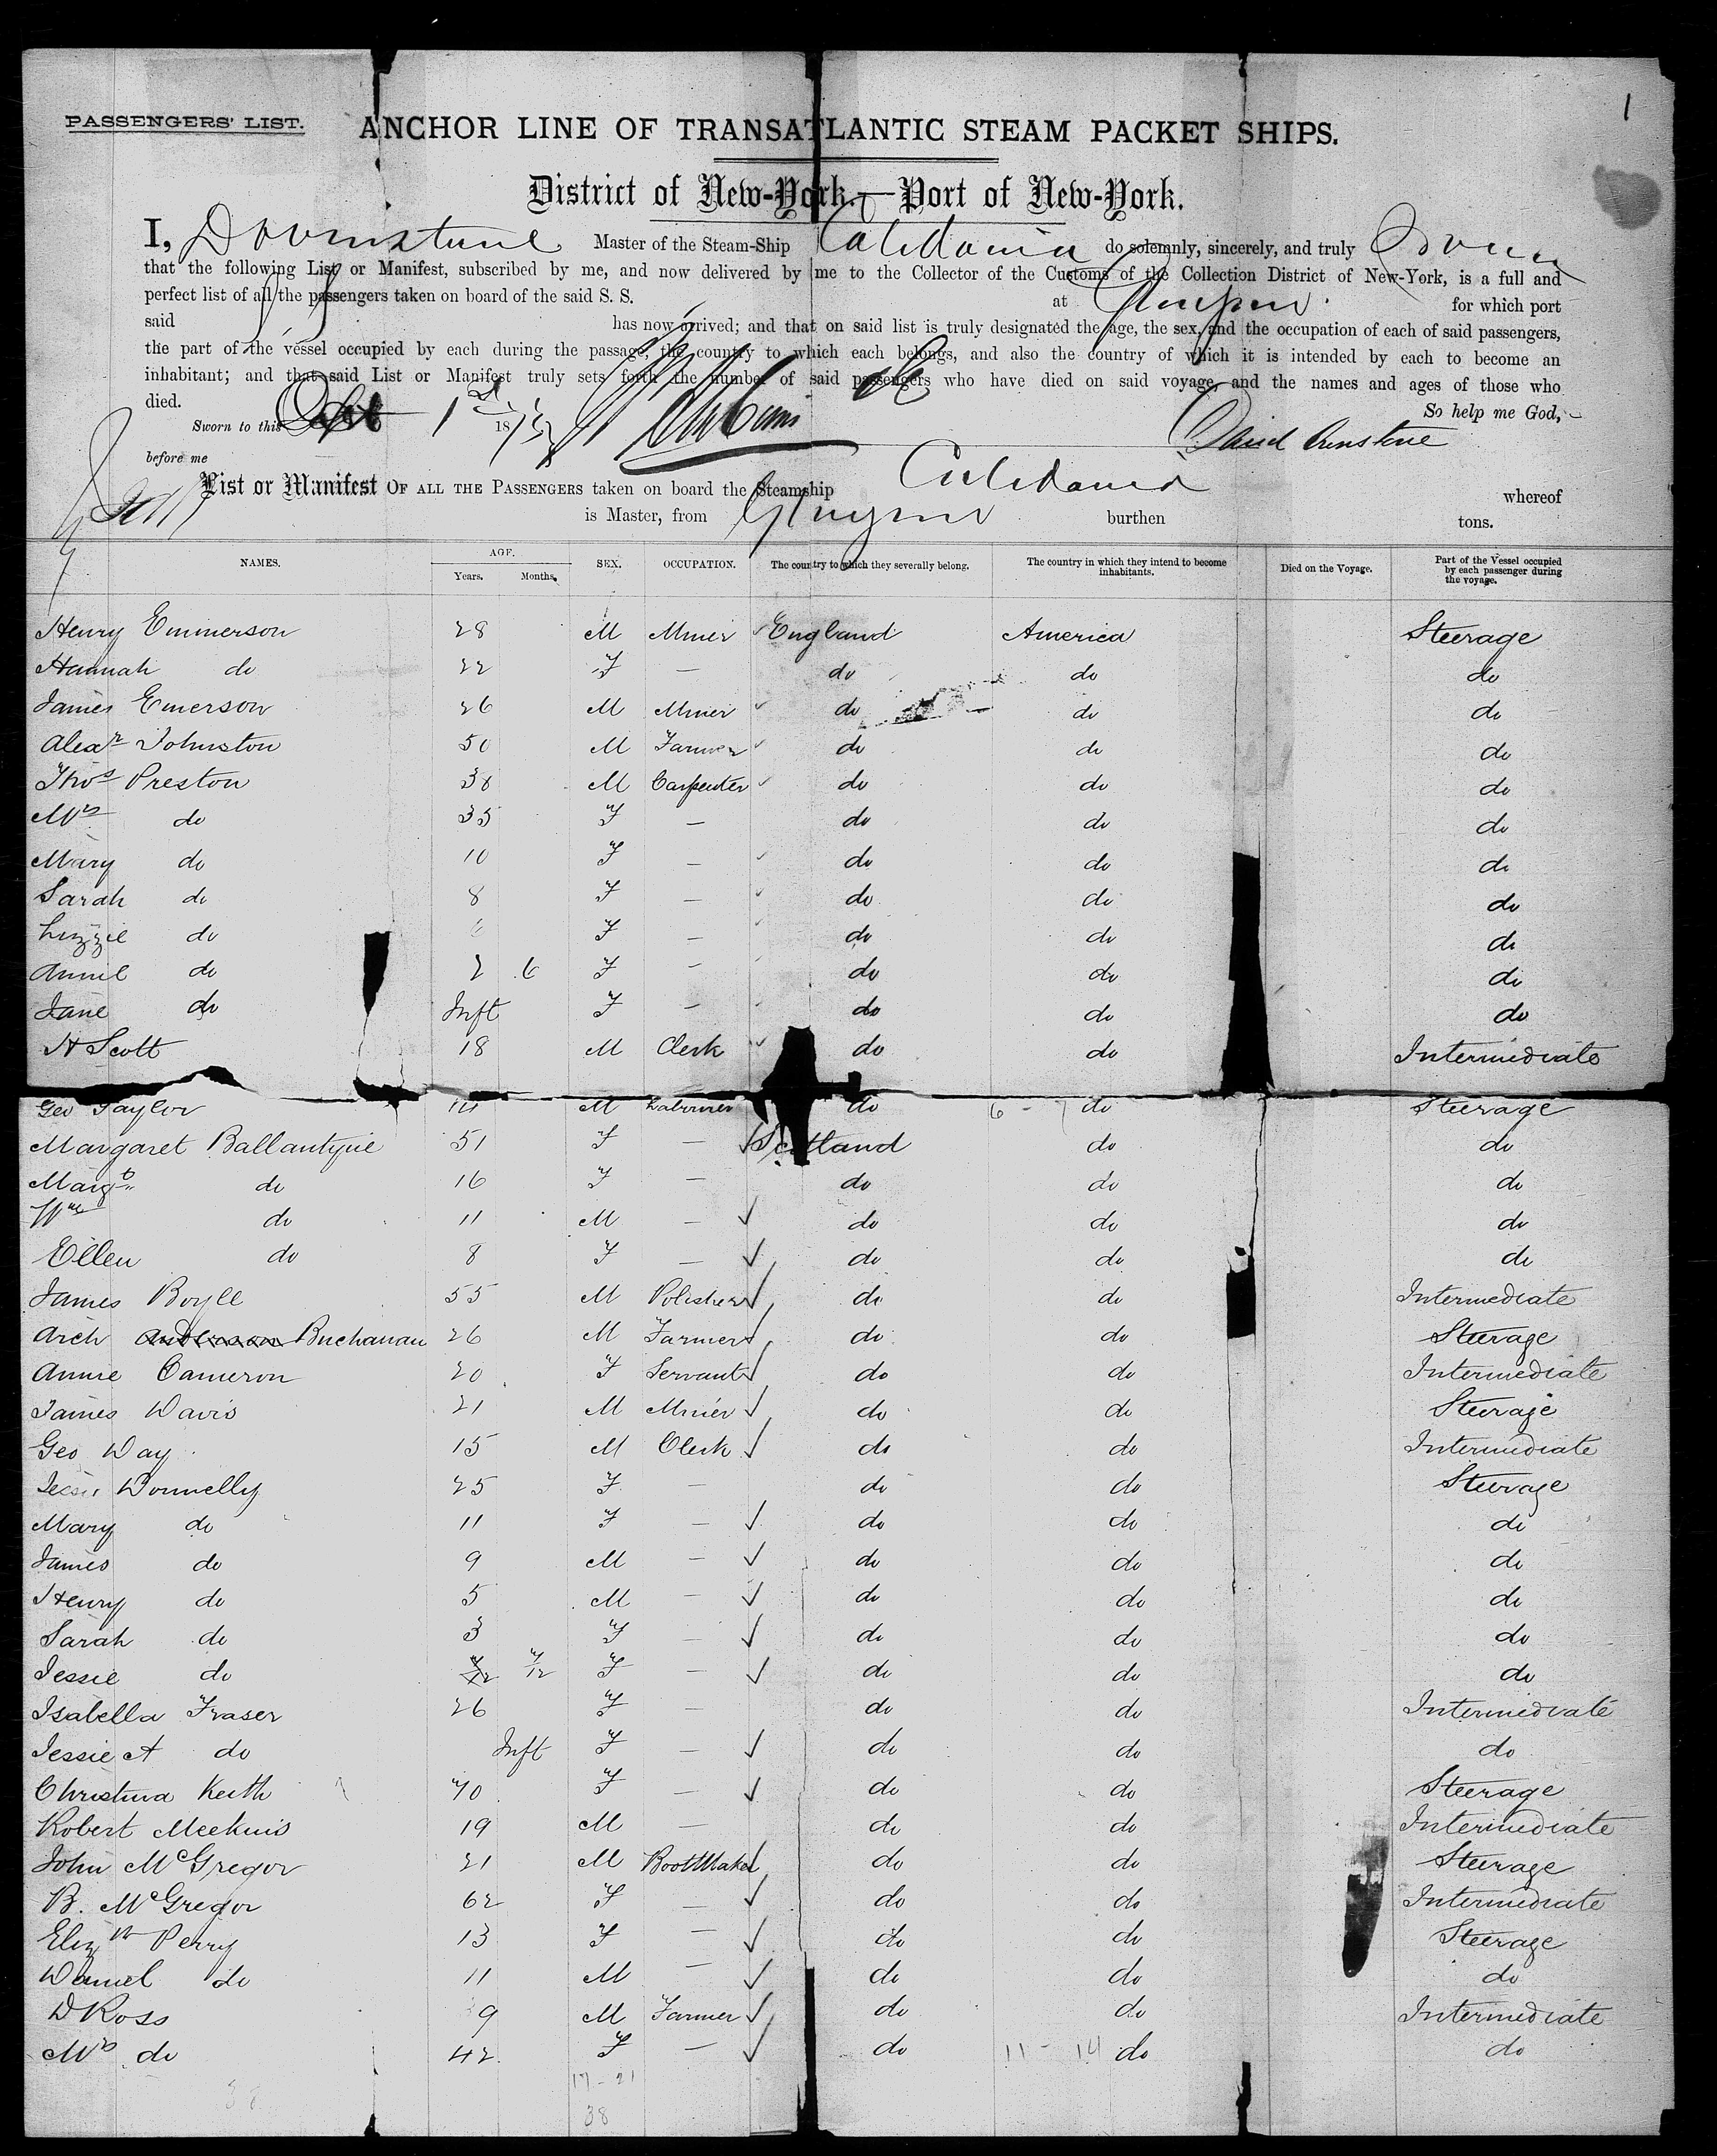 1
PASSENGERS' LIST. ANCHOR LINE OF TRANSATLANTIC STEAM PACKET SHIPS.
District of New-York.—Port of New-York.
I, Master of the Steam-Ship Caledonia do solemnly, sincerely, and truly
that the following List or Manifest, subscribed by me, and now delivered by me to the Collector of the Customs of the Collection District of New-York, is a full and
perfect list of all the passengers taken on board of the said S. S. at for which port
said has now arrived; and that on said list is truly designated the age, the sex, and the occupation of each of said passengers,
the part of the vessel occupied by each during the passage, the country to which each belongs, and also the country of which it is intended by each to become an
inhabitant; and that said List or Manifest truly sets forth the number of said passengers who have died on said voyage, and the names and ages of those who
died. So help me God,
Sworn to this 1st 18 David
before me
List or Manifest OF ALL THE PASSENGERS taken on board the Steamship Caledonia whereof
is Master, from burthen tons.
NAMES. AGE. Years. Months. SEX. OCCUPATION. The country to which they severally belong. The country in which they intend to become inhabitants. Died on the Voyage. Part of the Vessel occupied by each passenger during the voyage.
Henry Emmerson 28 M Miner England America Steerage
Hannah do 22 F — do do do
James Emerson 26 M Miner do do do
Alexr Johnston 50 M Farmer do do do
Thos Preston 38 M Carpenter do do do
Mrs do 35 F — do do do
Mary do 10 F — do do do
Sarah do 8 F — do do do
Lizzie do 6 F — do do do
Annie do 2 6 F — do do do
Jane do Inft F — do do do
H Scott 18 M Clerk do do Intermediate
Geo Taylor M Labourer do 6 - 7 do Steerage
Margaret Ballantyne 51 F — Scotland do do
Margt do 16 F — do do do
Wm do 11 M — do do do
Ellen do 8 F — do do do
James Boyle 55 M Polisher do do Intermediate
Arch Anderson Buchanan 26 M Farmer do do Steerage
Annie Cameron 20 F Servant do do Intermediate
James Davis 21 M Miner do do Steerage
Geo Day 15 M Clerk do do Intermediate
Jessie Donnelly 25 F — do do Steerage
Mary do 11 F — do do do
James do 9 M — do do do
Henry do 5 M — do do do
Sarah do 3 F — do do do
Jessie do 7/12 7/12 F — do do do
Isabella Fraser 26 F — do do Intermediate
Jessie A do Inft F — do do do
Christina Keith 70 F — do do Steerage
Robert Meekins 19 M — do do Intermediate
John McGregor 21 M BootMaker do do Steerage
B. McGregor 62 F — do do Intermediate
Elizth Perry 13 F — do do Steerage
Daniel do 11 M — do do do
D Ross 9 M Farmer do do Intermediate
Mrs do 42 F — do 11 - 14 do do
17 - 21
38 38